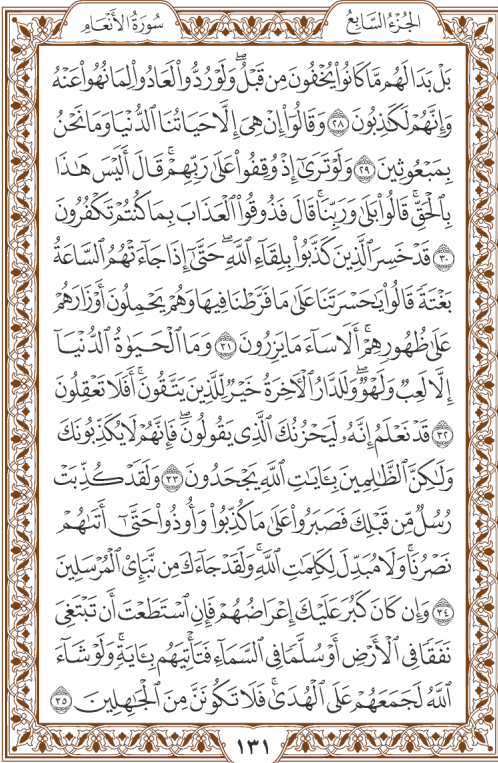 سُورَةُ الأَنْعَامِ الجُزْءُ السَّابِعُ
بَلْ بَدَا لَهُم مَّا كَانُوا۟ يُخْفُونَ مِن قَبْلُ ۖ وَلَوْ رُدُّوا۟ لَعَادُوا۟ لِمَا نُهُوا۟ عَنْهُ
وَإِنَّهُمْ لَكَـٰذِبُونَ ٢٨ وَقَالُوٓا۟ إِنْ هِىَ إِلَّا حَيَاتُنَا ٱلدُّنْيَا وَمَا نَحْنُ
بِمَبْعُوثِينَ ٢٩ وَلَوْ تَرَىٰٓ إِذْ وُقِفُوا۟ عَلَىٰ رَبِّهِمْ ۚ قَالَ أَلَيْسَ هَـٰذَا
بِٱلْحَقِّ ۚ قَالُوا۟ بَلَىٰ وَرَبِّنَا ۚ قَالَ فَذُوقُوا۟ ٱلْعَذَابَ بِمَا كُنتُمْ تَكْفُرُونَ
٣٠ قَدْ خَسِرَ ٱلَّذِينَ كَذَّبُوا۟ بِلِقَآءِ ٱللَّهِ ۖ حَتَّىٰٓ إِذَا جَآءَتْهُمُ ٱلسَّاعَةُ
بَغْتَةً قَالُوا۟ يَـٰحَسْرَتَنَا عَلَىٰ مَا فَرَّطْنَا فِيهَا وَهُمْ يَحْمِلُونَ أَوْزَارَهُمْ
عَلَىٰ ظُهُورِهِمْ ۚ أَلَا سَآءَ مَا يَزِرُونَ ٣١ وَمَا ٱلْحَيَوٰةُ ٱلدُّنْيَآ
إِلَّا لَعِبٌ وَلَهْوٌ ۖ وَلَلدَّارُ ٱلْـَٔاخِرَةُ خَيْرٌ لِّلَّذِينَ يَتَّقُونَ ۗ أَفَلَا تَعْقِلُونَ
٣٢ قَدْ نَعْلَمُ إِنَّهُۥ لَيَحْزُنُكَ ٱلَّذِى يَقُولُونَ ۖ فَإِنَّهُمْ لَا يُكَذِّبُونَكَ
وَلَـٰكِنَّ ٱلظَّـٰلِمِينَ بِـَٔايَـٰتِ ٱللَّهِ يَجْحَدُونَ ٣٣ وَلَقَدْ كُذِّبَتْ
رُسُلٌ مِّن قَبْلِكَ فَصَبَرُوا۟ عَلَىٰ مَا كُذِّبُوا۟ وَأُوذُوا۟ حَتَّىٰٓ أَتَىٰهُمْ
نَصْرُنَا ۚ وَلَا مُبَدِّلَ لِكَلِمَـٰتِ ٱللَّهِ ۚ وَلَقَدْ جَآءَكَ مِن نَّبَإِى۟ ٱلْمُرْسَلِينَ
٣٤ وَإِن كَانَ كَبُرَ عَلَيْكَ إِعْرَاضُهُمْ فَإِنِ ٱسْتَطَعْتَ أَن تَبْتَغِىَ
نَفَقًا فِى ٱلْأَرْضِ أَوْ سُلَّمًا فِى ٱلسَّمَآءِ فَتَأْتِيَهُم بِـَٔايَةٍ ۚ وَلَوْ شَآءَ
ٱللَّهُ لَجَمَعَهُمْ عَلَى ٱلْهُدَىٰ ۚ فَلَا تَكُونَنَّ مِنَ ٱلْجَـٰهِلِينَ ٣٥
١٣١